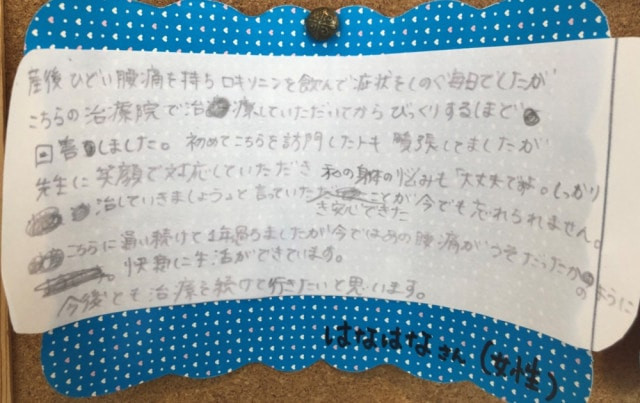 産後ひどい腰痛を持ちロキソニンを飲んで症状をしのぐ毎日でしたが
こちらの治療院で治療していただいてからびっくりするほど
回害しました。初めてこちらを訪門したトキ緊張してましたが
先生に笑顔で対応していただき私の身体の悩みも「大丈夫ですよ。しっかり
治していきましょう」と言っていただき安心できたことが今でも忘れられません。
こちらに通い続けて1年周りましたが今ではあの腰痛がうそだったかのように
快適に生活ができています。
今後とも治療を続けて行きたいと思います。
はなはなさん(女性)